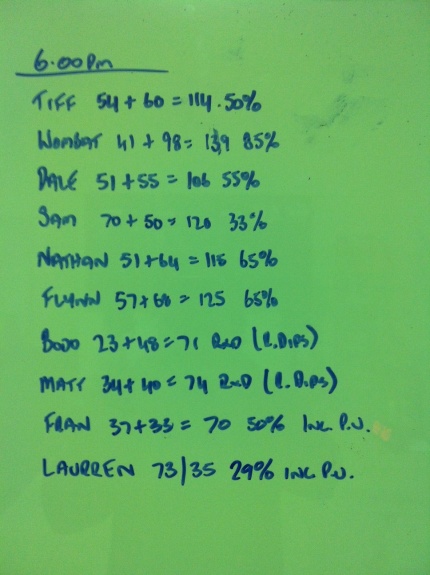 6.00pm
TIFF 54 + 60 = 114. 50%
WOMBAT 41 + 98 = 139 85%
DALE 51 + 55 = 106 55%
SAM 70 + 50 = 120 33%
NATHAN 51 + 64 = 115 65%
FLYNN 57 + 68 = 125 65%
BODO 23 + 48 = 71 RxD (R. DIPS)
MATT 34 + 40 = 74 RxD (R. DIPS)
FRAN 37 + 33 = 70 50% INC. P.U.
LAURREN 73/35 29% INC P.U.